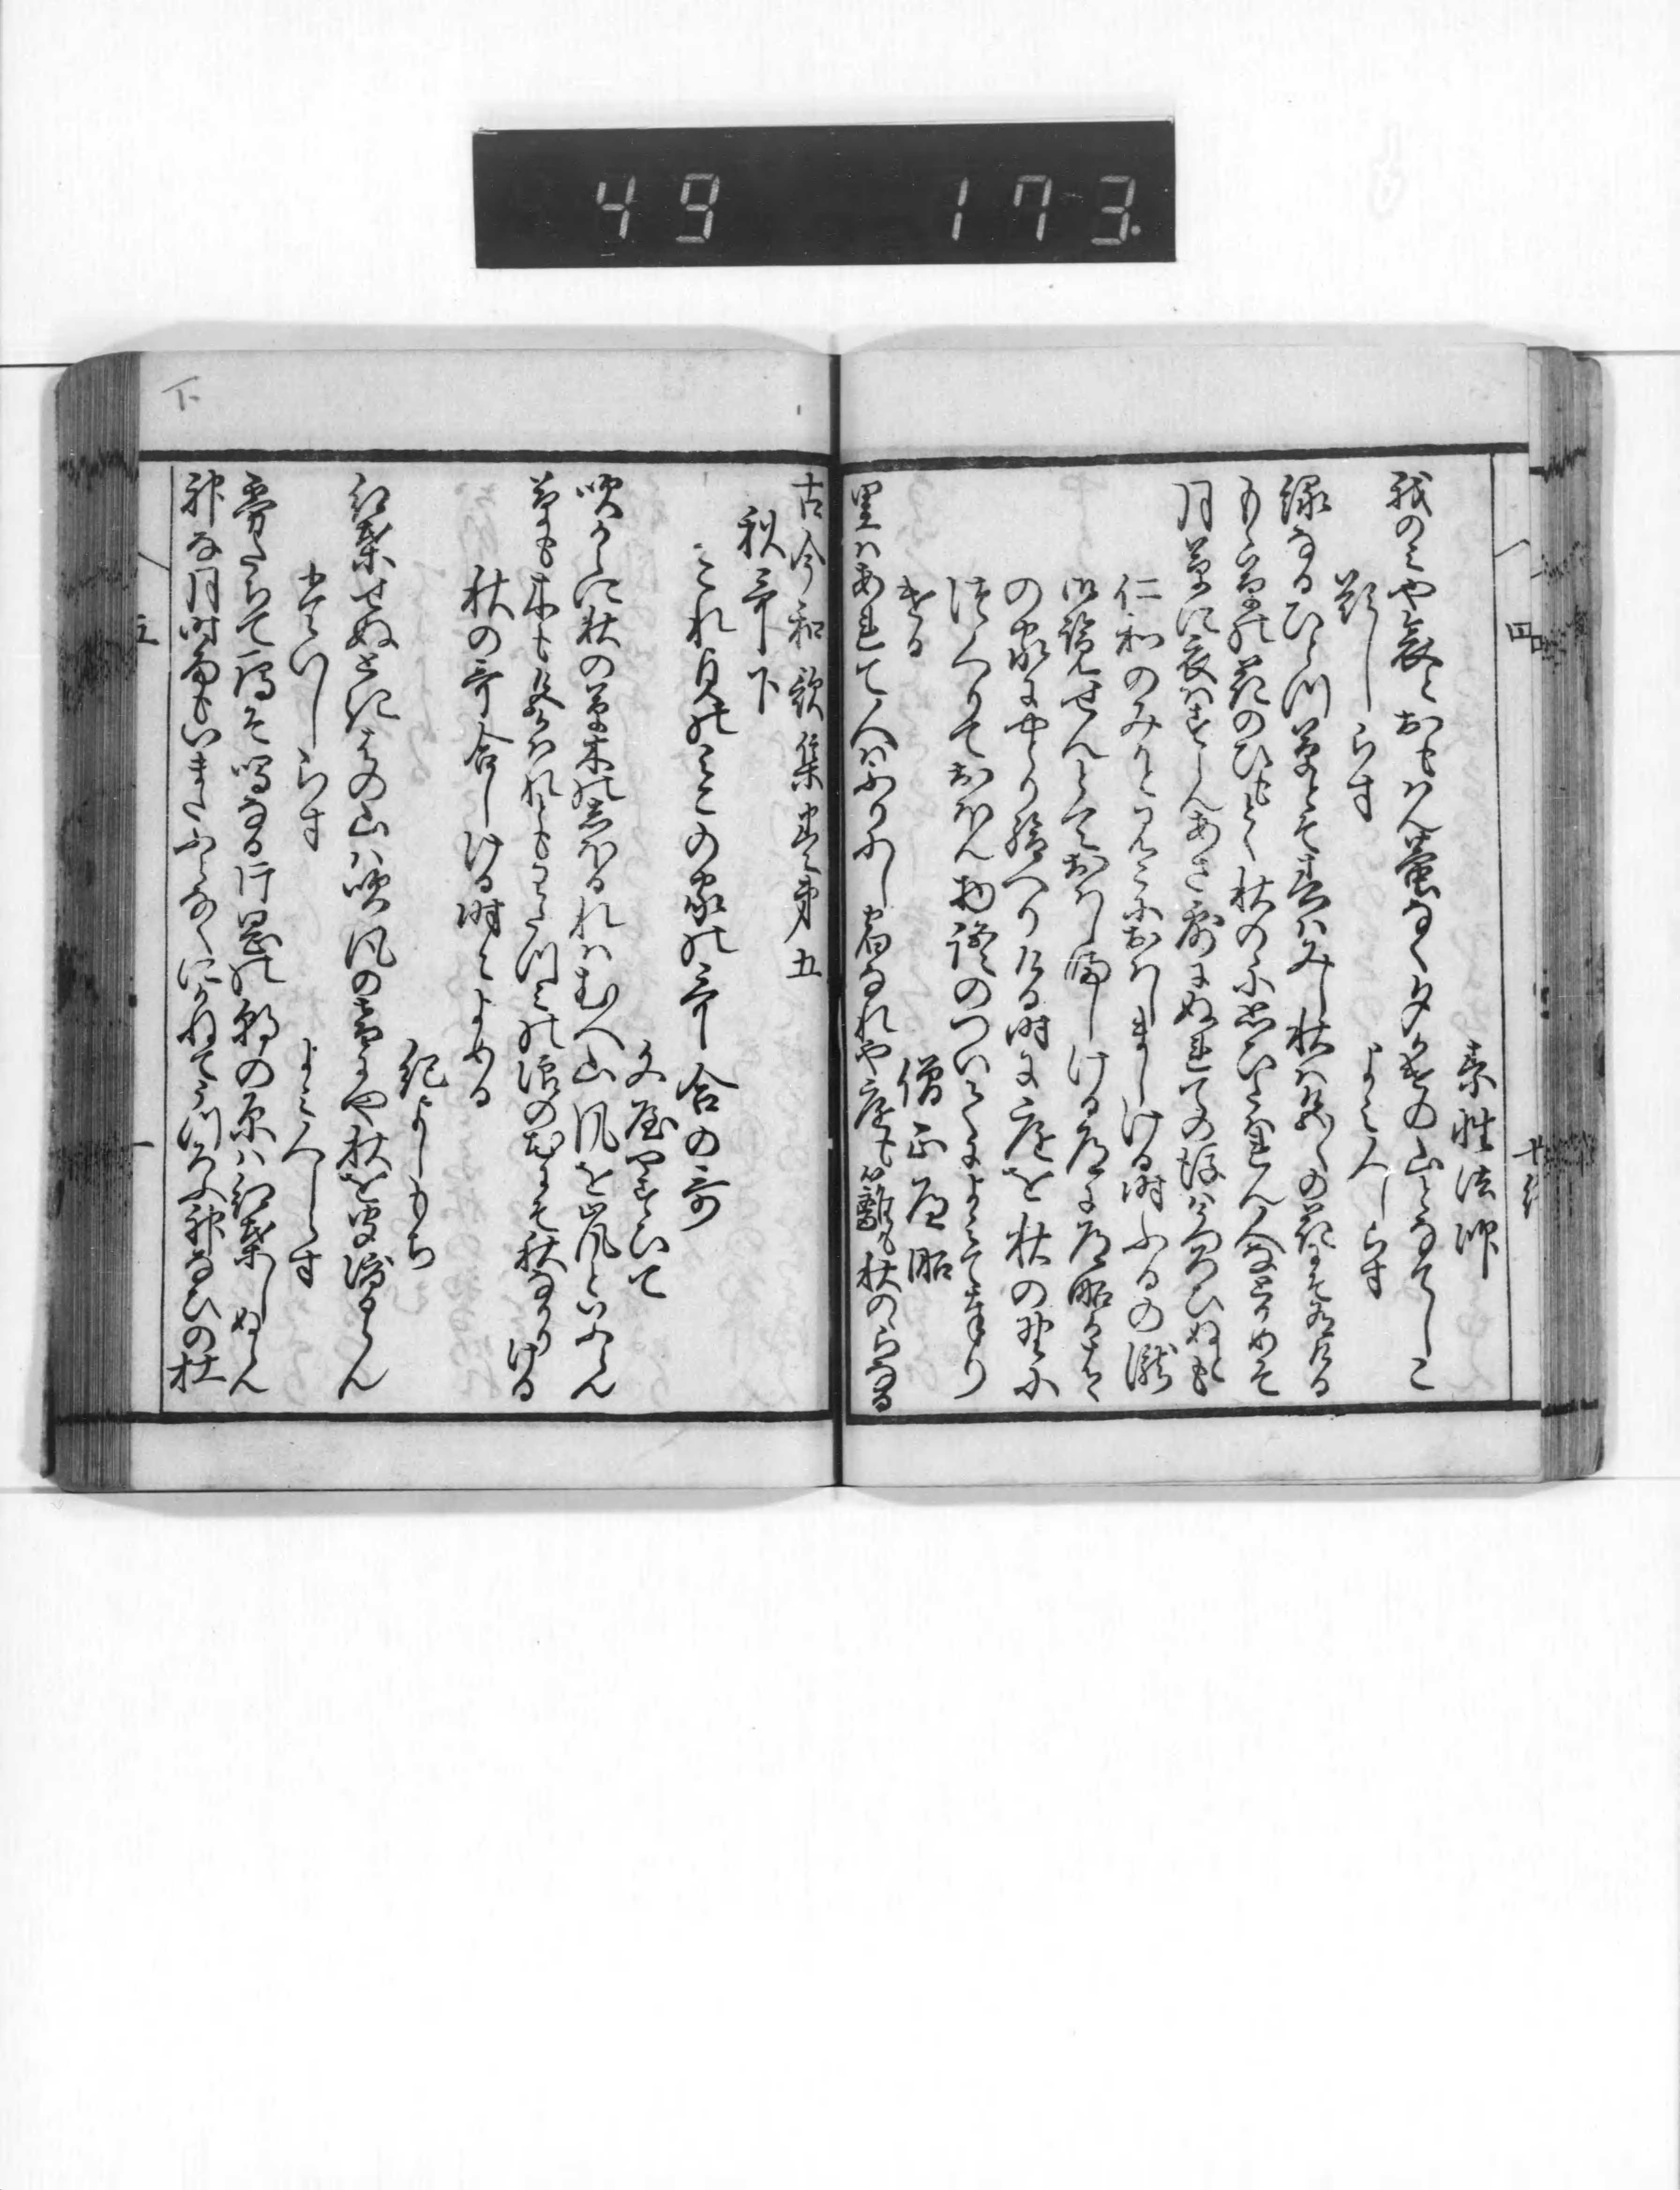 49 173.
素性法師
我のみや哀とおもはん蛬なく夕かけの山となてしこ
題しらす よみ人しらす
緑なるひとつ草とそ春はみし秋は色〱の花にそ有ける
もゝ草の花のひもとく秋の野に思ひたはれん人なとかめそ
月草に衣はすらんあさ露にぬれての後はうつろひぬとも
仁和のみかとみこにおはしましける時ふるの瀧
御覧せんとておはしましける道に遍昭かはゝ
の家にやとり給へりける時に庭を秋の野に
つくりておほん物語のついてによみて奉り
ける
僧正遍昭
里はあれて人はふりにし宿なれや庭も籬も秋ののらなる
古今和歌集巻第五
秋哥下
これ貞のみこの家の哥合の哥
文屋やすひて
吹からに秋の草木のしほるれはむへ山風を嵐といふらん
草も木も色かはれともわたつみの浪の花にそ秋なかりける
秋の哥合しける時によめる
紀よしもち
紅葉せぬときはの山は吹風の音にや秋を聞渡るらん
題しらす よみ人しらす
霧たちて鴈そ鳴なる片岡の朝の原は紅葉しぬらん
神な月時雨もいまたふらなくにかねてうつろふ神なひの杜
下
四
五